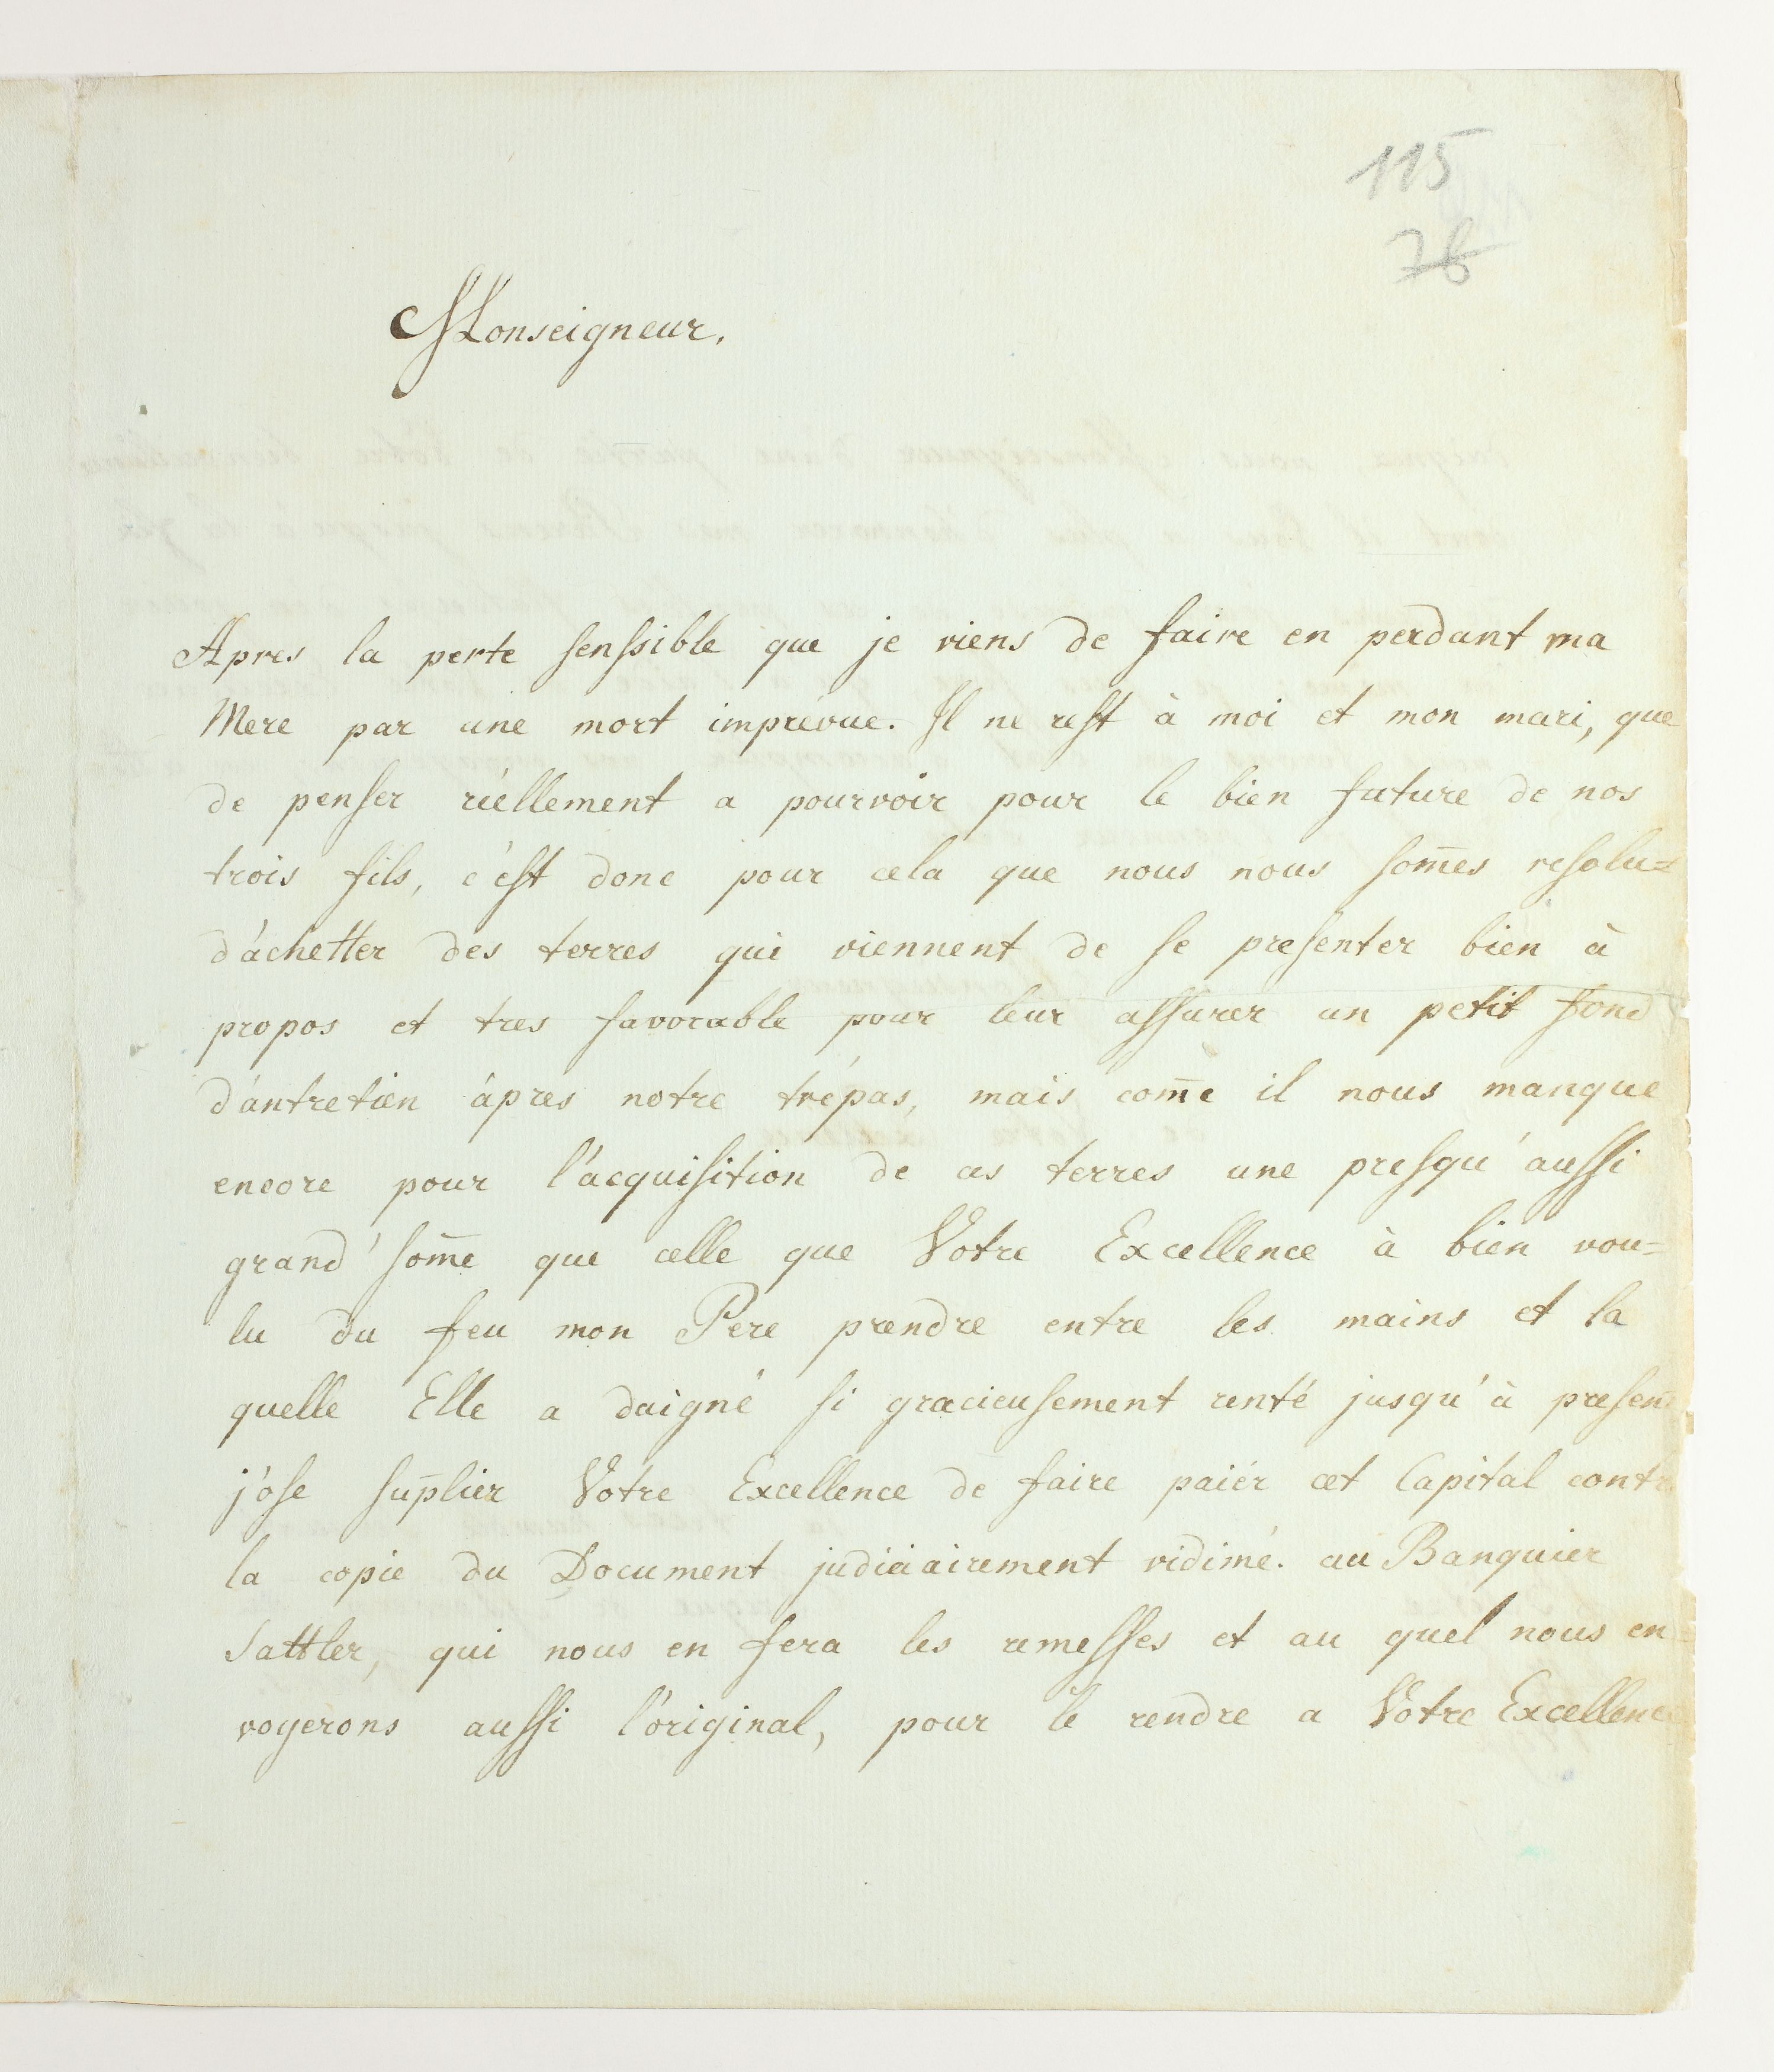 115
76
Monseigneur,
Apres la perte senssible que je viens de faire en perdant ma
Mere par une mort imprévue. Il ne rest à moi et mon mari, que
de penser réellement a pourvoir pour le bien future de nos
trois fils, c'est donc pour cela que nous nous som̄es resolu=
d'achetter des terres qui viennent de se presenter bien à
propos et tres favorable pour leur assurer un petit fond
d'antretien àpres notre trépas, mais com̄e il nous manque
encore pour l'acquisition de ces terres une presqu'aussi
grand' som̄e que celle que Votre Excellence à bien vou=
lu du feu mon Pere prendre entre les mains et la
quelle Elle a daigné si gracieusement renté jusqu'à presen
j'ose sup̄lier Votre Excellence de faire paiér cet Capital contr
la copie du Document judiciairement vidimé. au Banquier
Sattler, qui nous en fera les remesses et au quel nous en=
voyerons aussi l'original, pour le rendre a Votre Excellence